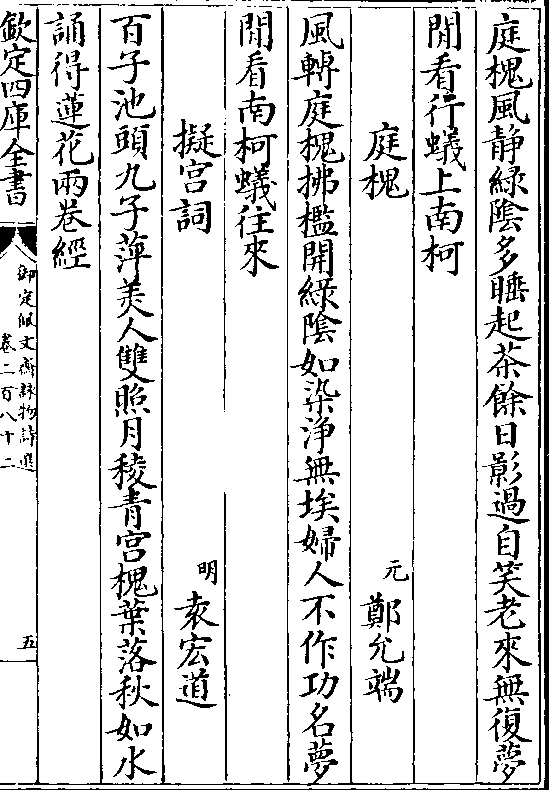 庭槐風静緑陰多睡起茶餘日影過自笑老來無復夢
閒看行蟻上南柯
庭槐 元 鄭允端
風轉庭槐拂檻開緑陰如染淨無埃婦人不作功名夢
閒看南柯蟻往來
擬宫詞 明 袁宏道
百子池頭九子萍美人雙照月稜青宫槐葉落秋如水
誦得蓮花兩卷經
欽定四庫全書
御定佩文齋詠物詩選
卷二百八十二
五